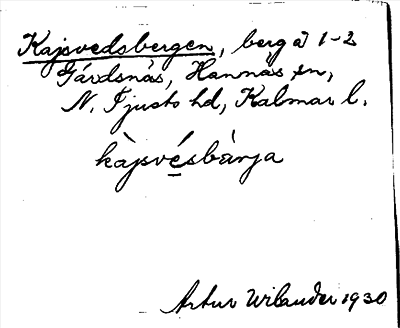 Kajsvedsbergen, berg å 1-2
Gärdsnäs, Hannäs sn,
N. Tjusts hd, Kalmar l.
kàjsvésbàrja
Artur Wilander 1930